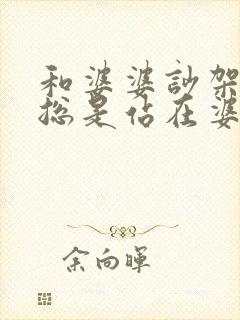 和婆婆訬架
總是佔在婆
余向暉